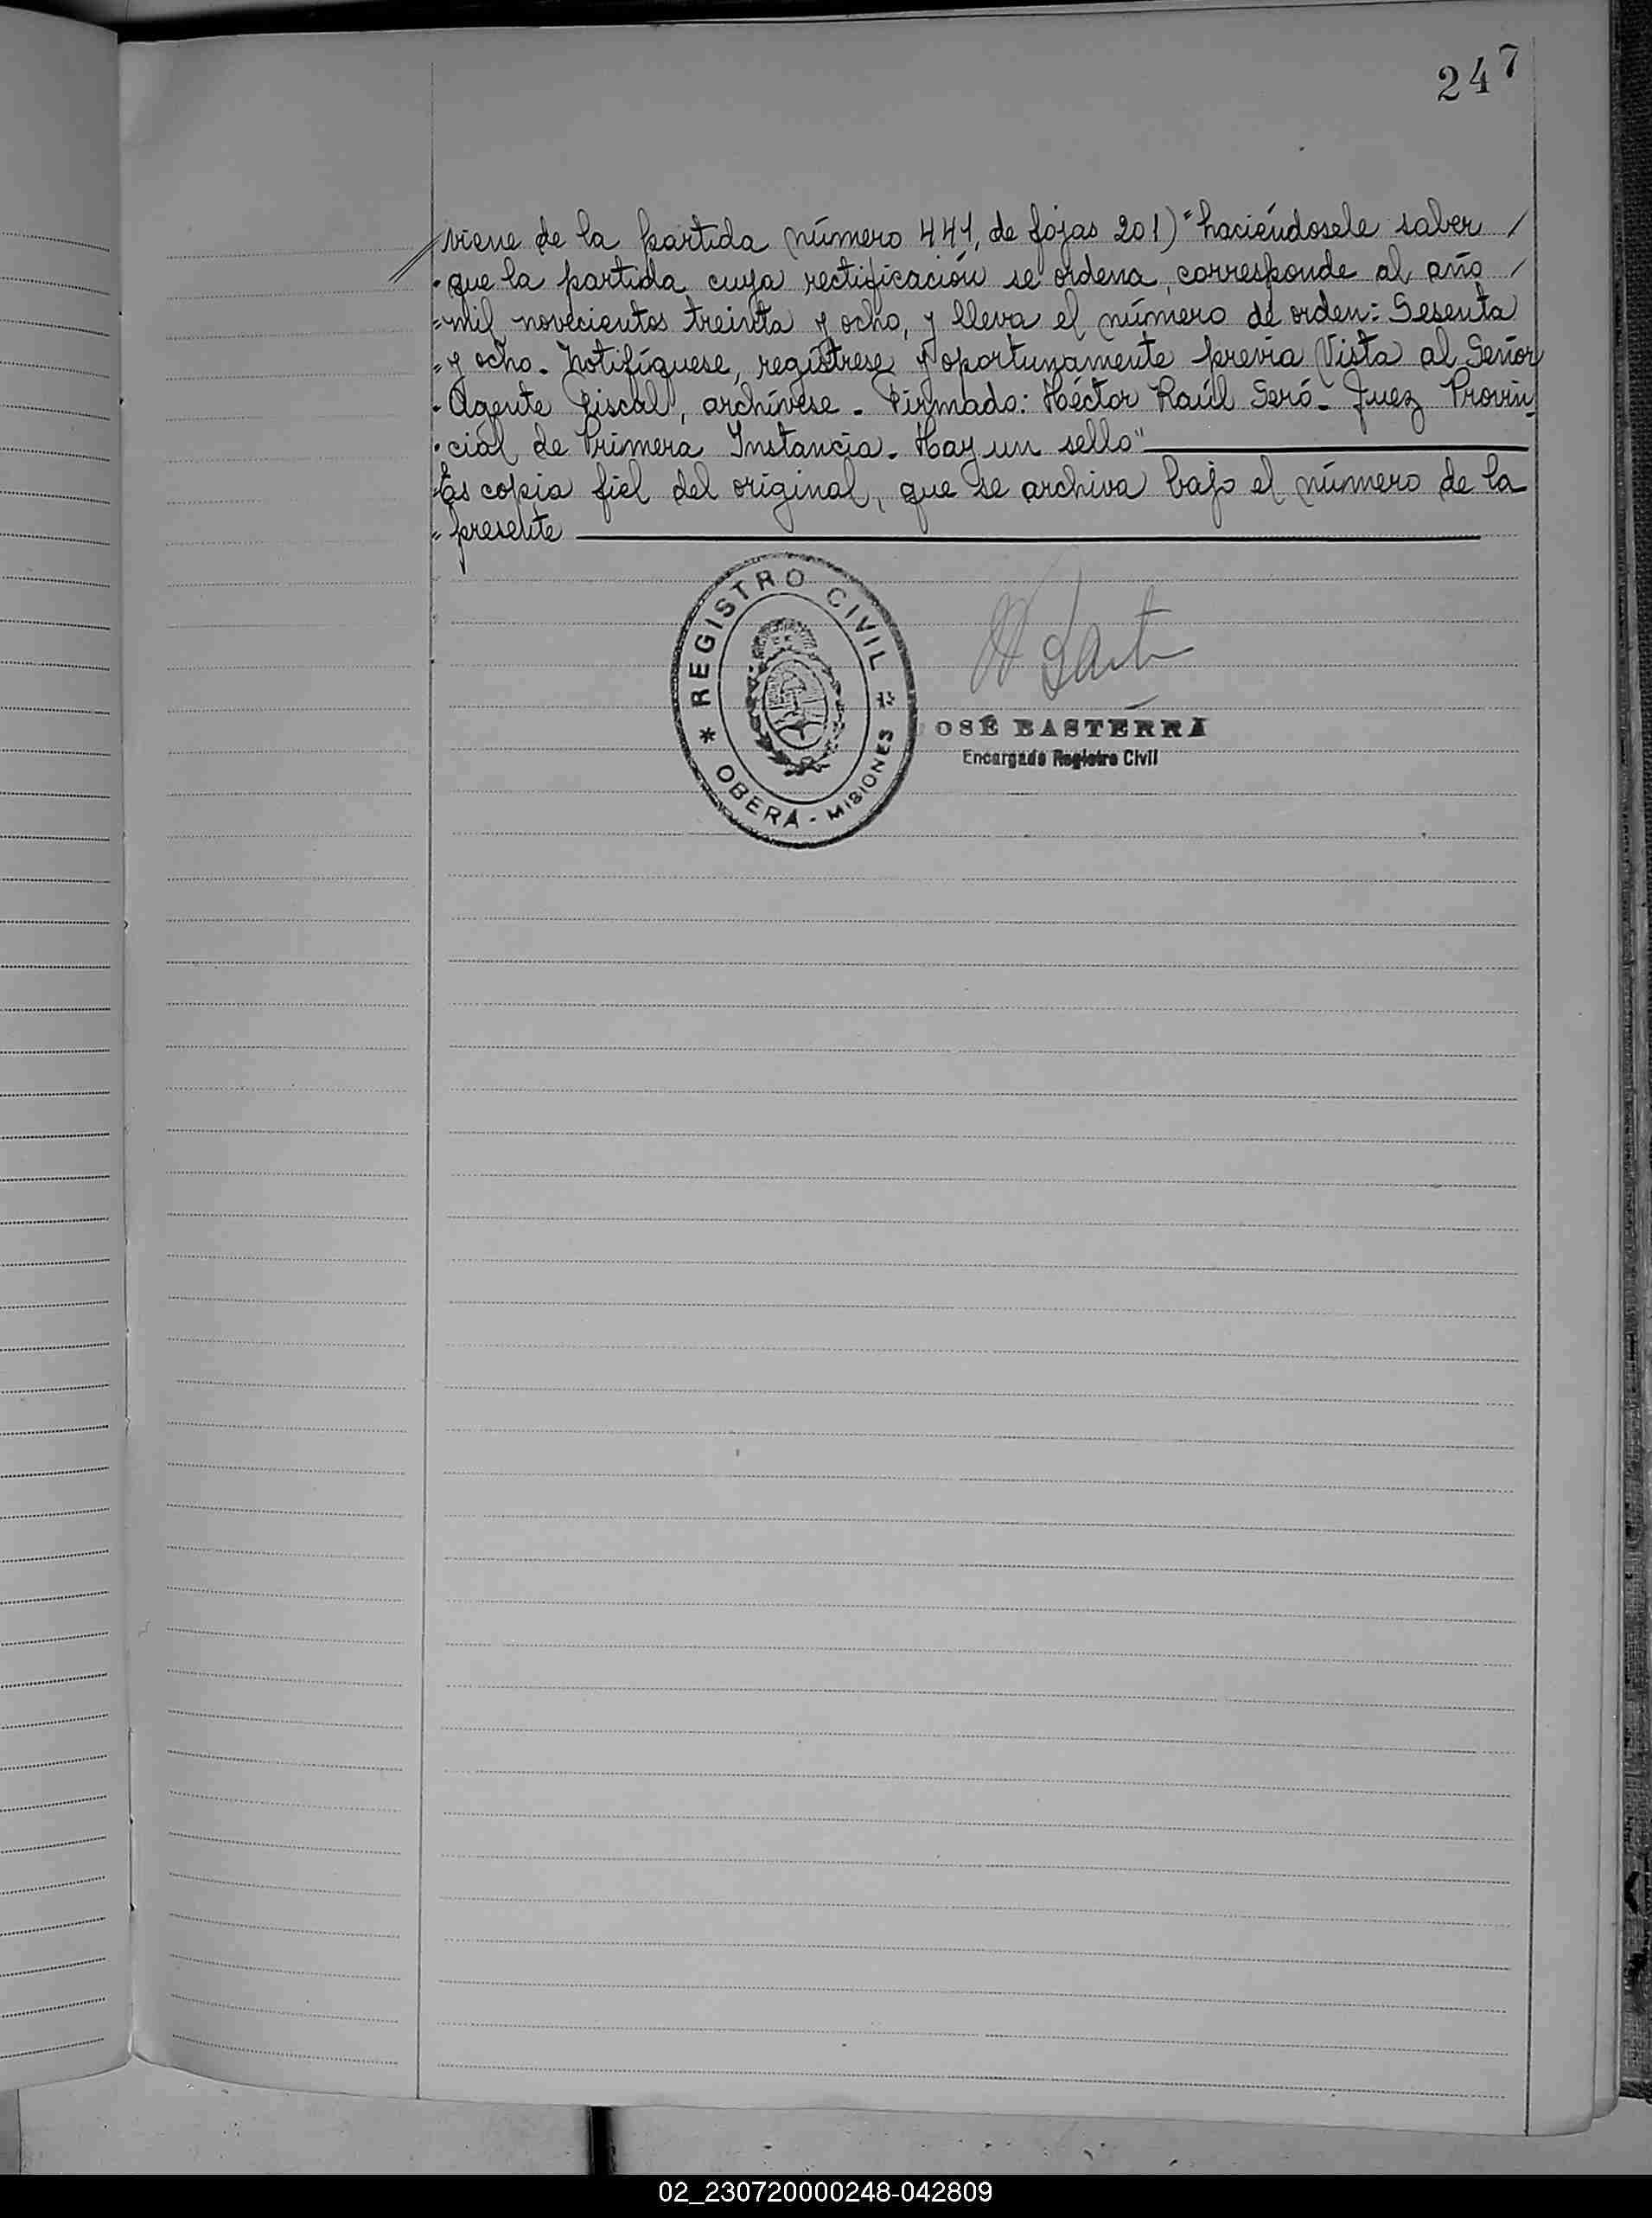 247
// viene de la partida número 441, de fojas 201) "haciéndosele saber /
" que la partida cuya rectificación se ordena, corresponde al año /
" mil novecientos treinta y ocho, y lleva el número de orden: Sesenta
" y ocho. Notifíquese, regístrese y oportunamente previa Vista al Señor
" Agente Fiscal, archívese. Firmado: Héctor Raúl Seró. Juez Provin-
" cial de Primera Instancia. Hay un sello"
" Es copia fiel del original, que se archiva bajo el número de la
" presente
REGISTRO CIVIL
* OBERÁ - MISIONES *
OSÉ BASTERRA
Encargado Registro Civil
02_230720000248-042809